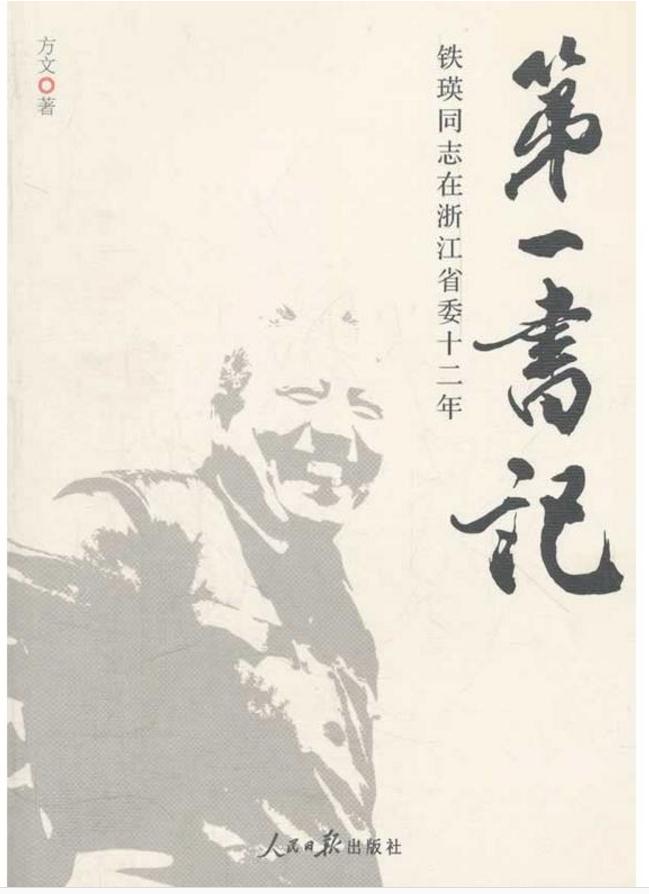 第一書记
铁瑛同志在浙江省委十二年
方文○著
人民日报出版社